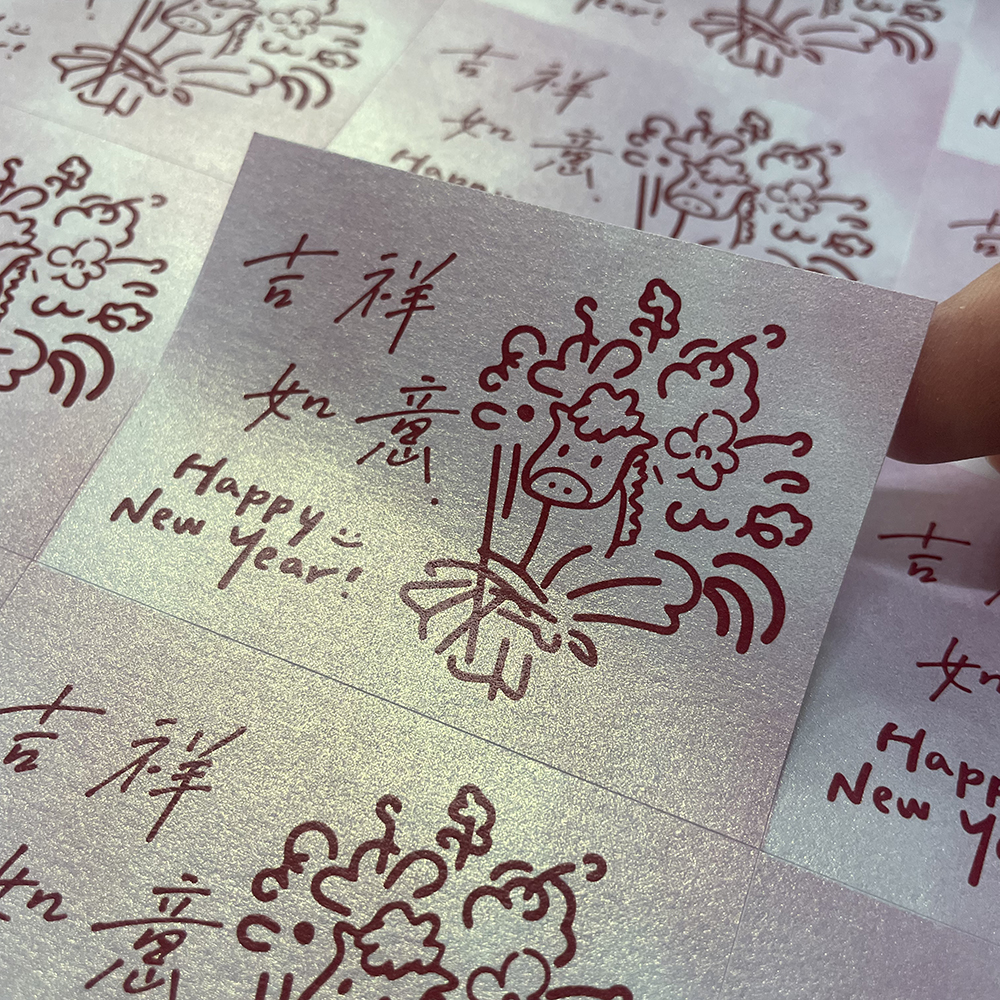 吉祥
如意
Happy
New Year!
吉祥
如意
Happy
吉祥
如意
吉
如
Happ
New Ye